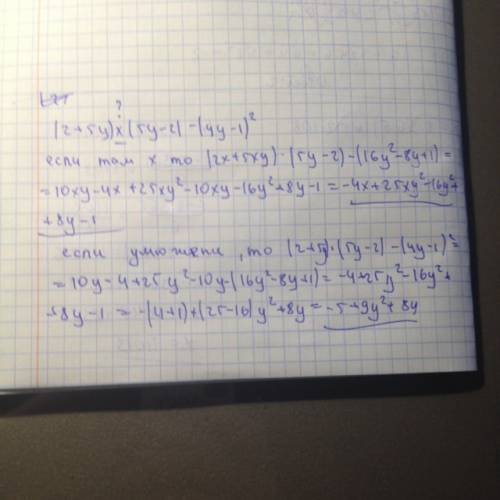 ?
(2+5y)x(5y-2)-(4y-1)²
если там x то (2x+5xy)·(5y-2)-(16y²-8y+1)=
=10xy-4x+25xy²-10xy-16y²+8y-1=-4x+25xy²-16y²+
+8y-1
если умножени, то (2+5y)·(5y-2)-(4y-1)²=
=10y-4+25y²-10y-(16y²-8y+1)=-4+25y²-16y²+
+8y-1=-(4+1)+(25-16)y²+8y=-5+9y²+8y